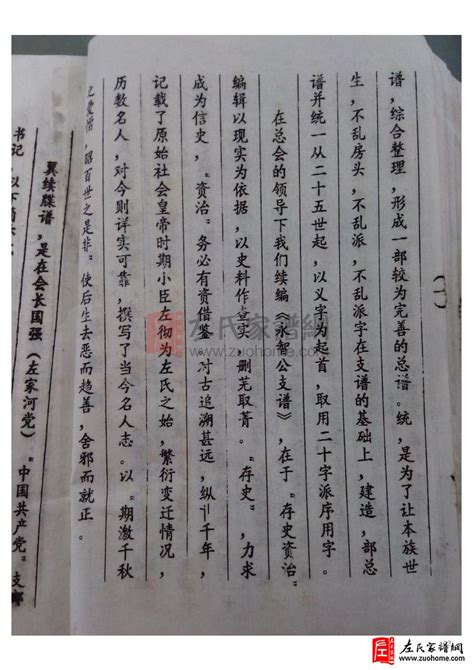 (一)
谱,综合整理,形成一部较为完善的总谱。统,是为了让本族世
生,不乱房头,不乱派,不乱派字在支谱的基础上,建造,部总
谱并统一从二十五世起,以义字为起首,取用二十字派序用字。
在总会的领导下我们续编《永智公支谱》,在于“存史资治”
编辑以现实为依据,以史料作查实,删芜取菁。“存史”,力求
成为信史,“资治”务必有资借鉴,对古追溯甚远,纵川千年,
记载了原始社会皇帝时期小臣左彻为左氏之始,繁衍变迁情况,
历数名人,对今则详实可靠,撰写了当今名人志。以“期激千秋
之爱憎,昭百世之是非”使后生去恶而趋善,舍邪而就正。
翼续牒谱,是在会长国强(左家河党)“中国共产党”支部
书记,以下
左氏家谱網
www.zuohome.com
左氏家谱网
www.zuohome.com